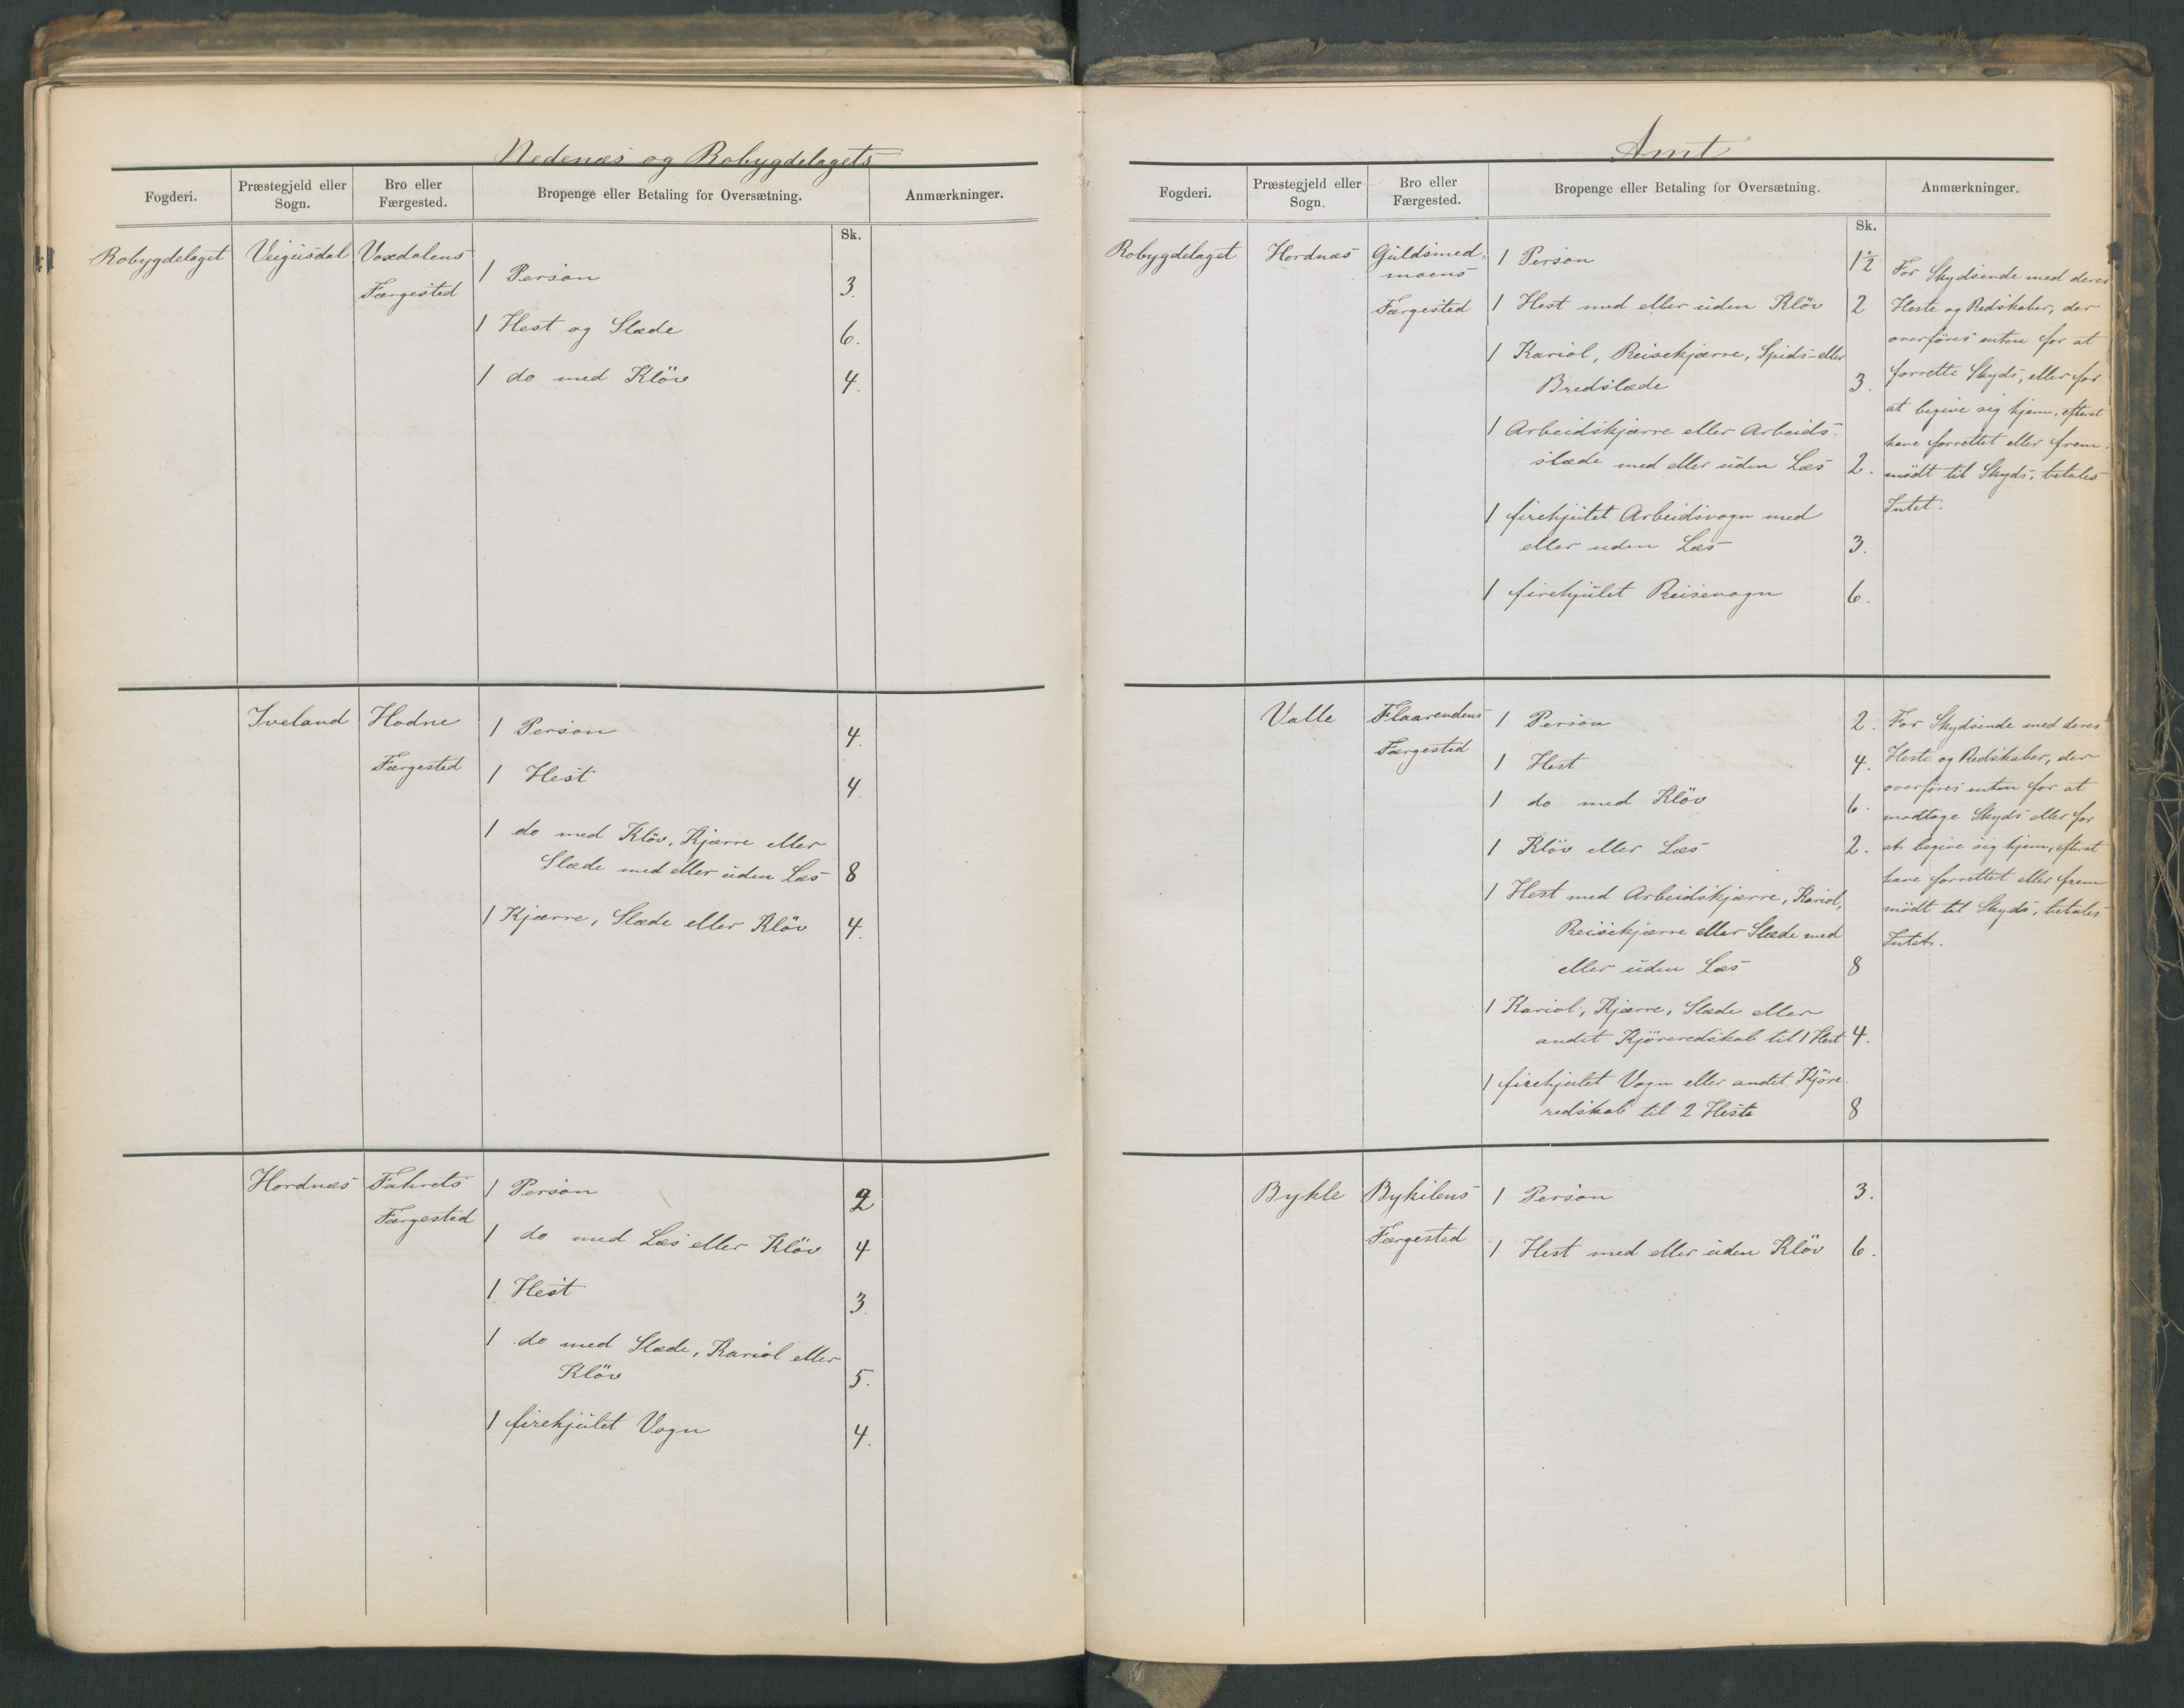 Nedenæs og Robygdelagets
Fogderi. Præstegjeld eller Sogn. Bro eller Færgested. Bropenge eller Betaling for Oversætning. Anmærkninger.
Sk.
Robygdelaget Veigusdal Voxdalens
Færgested
1 Person 3.
1 Hest og Slæde 6.
1 do med Klöv 4.
Iveland Hodne
Færgested
1 Person 4.
1 Hest 4.
1 do med Klöv, Kjærre eller
Slæde med eller uden Læs 8
1 Kjærre, Slæde eller Klöv 4.
Hordnæs Fahrets
Færgested
1 Person 2
1 do med Læs eller Klöv 4
1 Hest 3.
1 do med Slæde, Kariol eller
Klöv 5.
1 firehjulet Vogn 4.
Amt
Fogderi. Præstegjeld eller Sogn. Bro eller Færgested. Bropenge eller Betaling for Oversætning. Anmærkninger.
Sk.
Robygdelaget Hordnæs Guldsmed-
moens
Færgested
1 Person 1½
1 Hest med eller uden Klöv 2
1 Kariol, Reisekjærre, Spids- eller
Bredslæde 3.
1 Arbeidskjærre eller Arbeids-
slæde med eller uden Læs 2.
1 firehjulet Arbeidsvogn med
eller uden Læs 3.
1 firehjulet Reisevogn 6.
For Skydsende med deres
Heste og Redskaber, der
overføres enten for at
forrette Skyds, eller for
at begive sig hjem, efterat
have forrettet eller frem-
mödt til Skyds, betales
Intet.
Valle Flaarendens
Færgested
1 Person 2.
1 Hest 4.
1 do med Klöv 6.
1 Klöv eller Læs 2.
1 Hest med Arbeidskjærre, Kariol,
Reisekjærre eller Slæde med
eller uden Læs 8
1 Kariol, Kjærre, Slæde eller
andet Kjöreredskab til 1 Hest 4.
1 firehjulet Vogn eller andet Kjöre-
redskab til 2 Heste 8
For Skydsende med deres
Heste og Redskaber, der
overføres enten for at
modtage Skyds eller for
at begive sig hjem, efterat
have forrettet eller frem
mödt til Skyds, betales
Intet.
Bykle Bykilens
Færgested
1 Person 3.
1 Hest med eller uden Klöv 6.